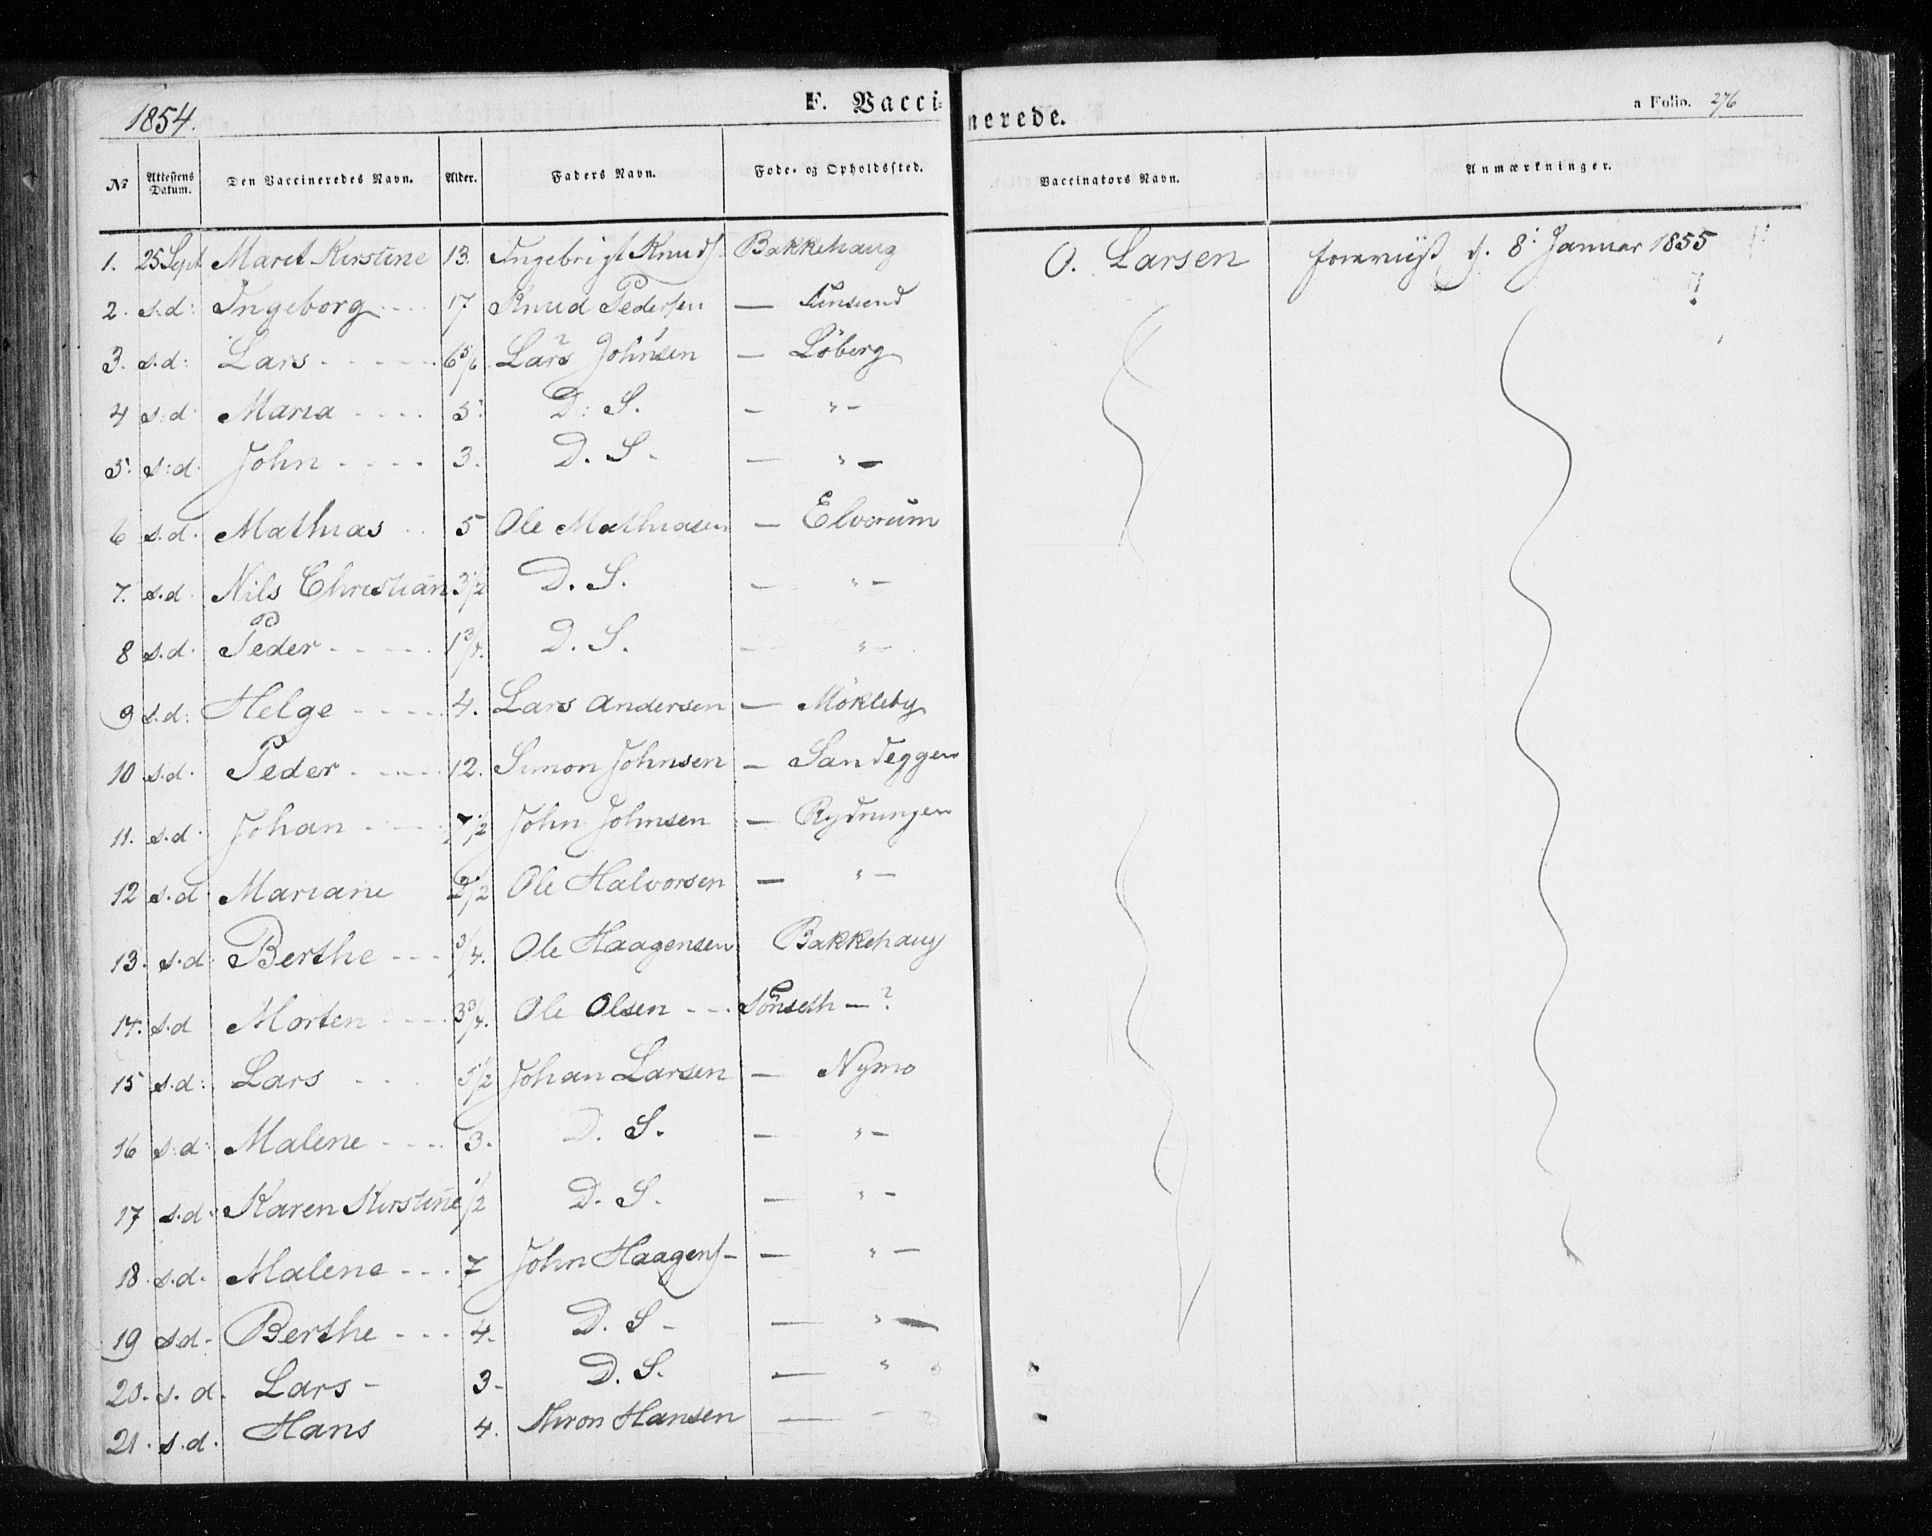 1854.
F. Vacci-nerede.
a Folio. 276
No Attestens Datum. Den Vaccineredes Navn. Alder. Faders Navn. Føde- og Opholdssted. Vaccinators Navn. Anmærkninger.
1. 25 Sept Maret Kirstine 13. Ingebrigt Knuds. Bakkehaug O. Larsen foreviist d. 8: Januar 1855
2. s.d: Ingeborg 17 Knud Pedersen — Finsund
3. s.d: Lars 6 5/6 Lars Johnsen — Löberg
4 s:d Maria 5. D. S. — " —
5. s:d. John 3. D. S. — " —
6 s.d. Mathias 5 Ole Mathiasen — Elverum
7. s.d Nils Christian 3 1/2 D. S. — " —
8 s.d. Peder D. S. — " —
9 s.d: Helge 4. Lars Andersen — Mökleby
10 s.d. Peder 12. Simon Johnsen — Sandeggen
11. s.d. Johan 7 1/2 John Johnsen — Rydningen
12 s.d. Mariane 2 1/2 Ole Halvorsen — " —
13. s.d. Berthe 3/4. Ole Haagensen Bakkehaug
14. s.d Morten 3 3/4. Ole Olsen Sönseth — ?
15 s.d: Lars 5 1/2 Johan Larsen — Nymo
16 s:d: Malene 3. D. S. — " —
17 s.d. Karen Kirstine 1/2 D. S. — " —
18. s.d. Malene 7 John Haagens — " —
19 s.d. Berthe 4. D. S — " —
20. s. d. Lars 3 D. S. — "
21. s.d. Hans 4. Hansen —